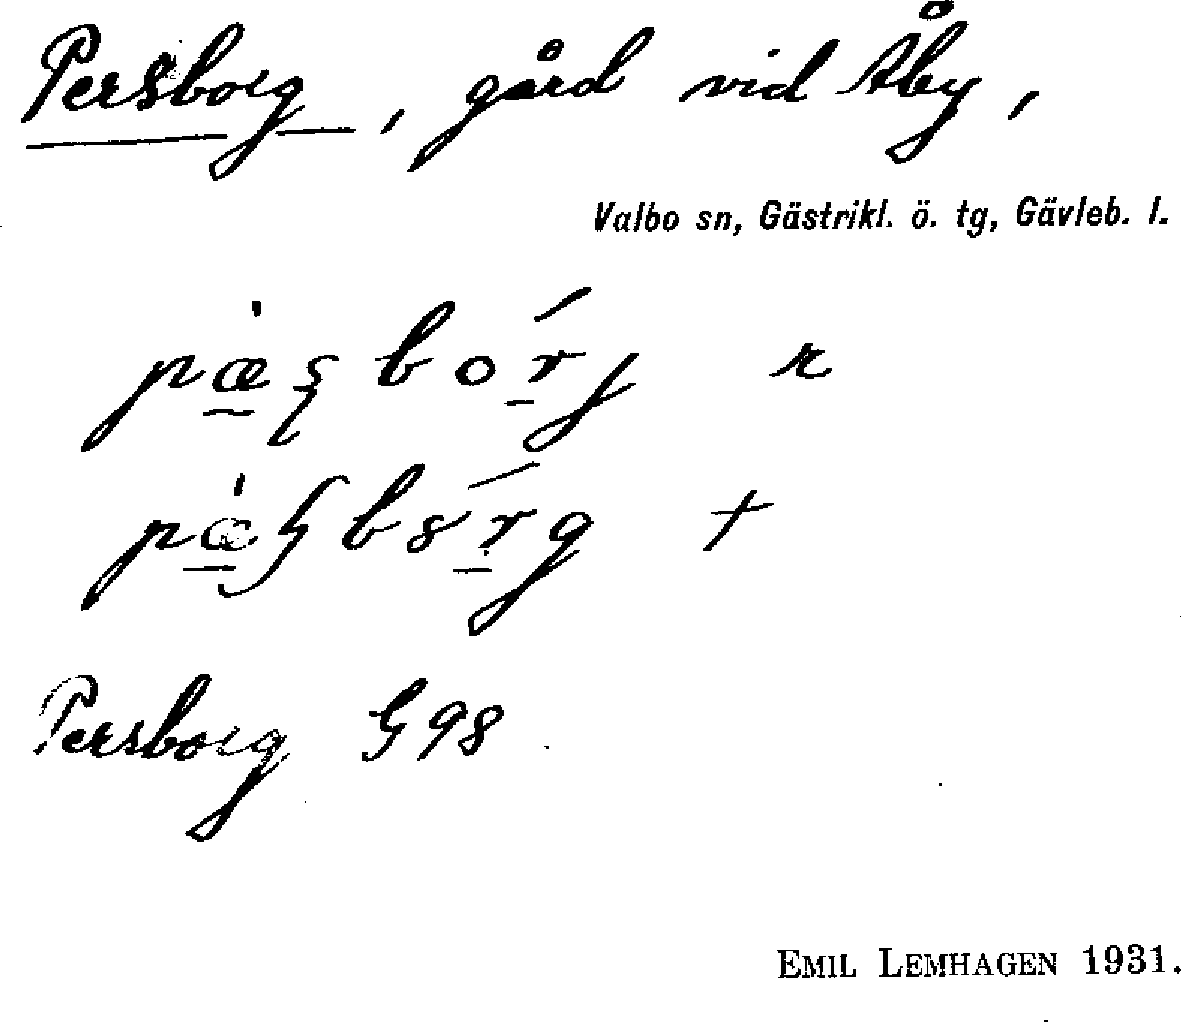 Persborg, gård vid Åby,
Valbo sn, Gästrikl. ö. tg, Gävleb. l.
r
+
Persborg G 98
EMIL LEMHAGEN 1931.